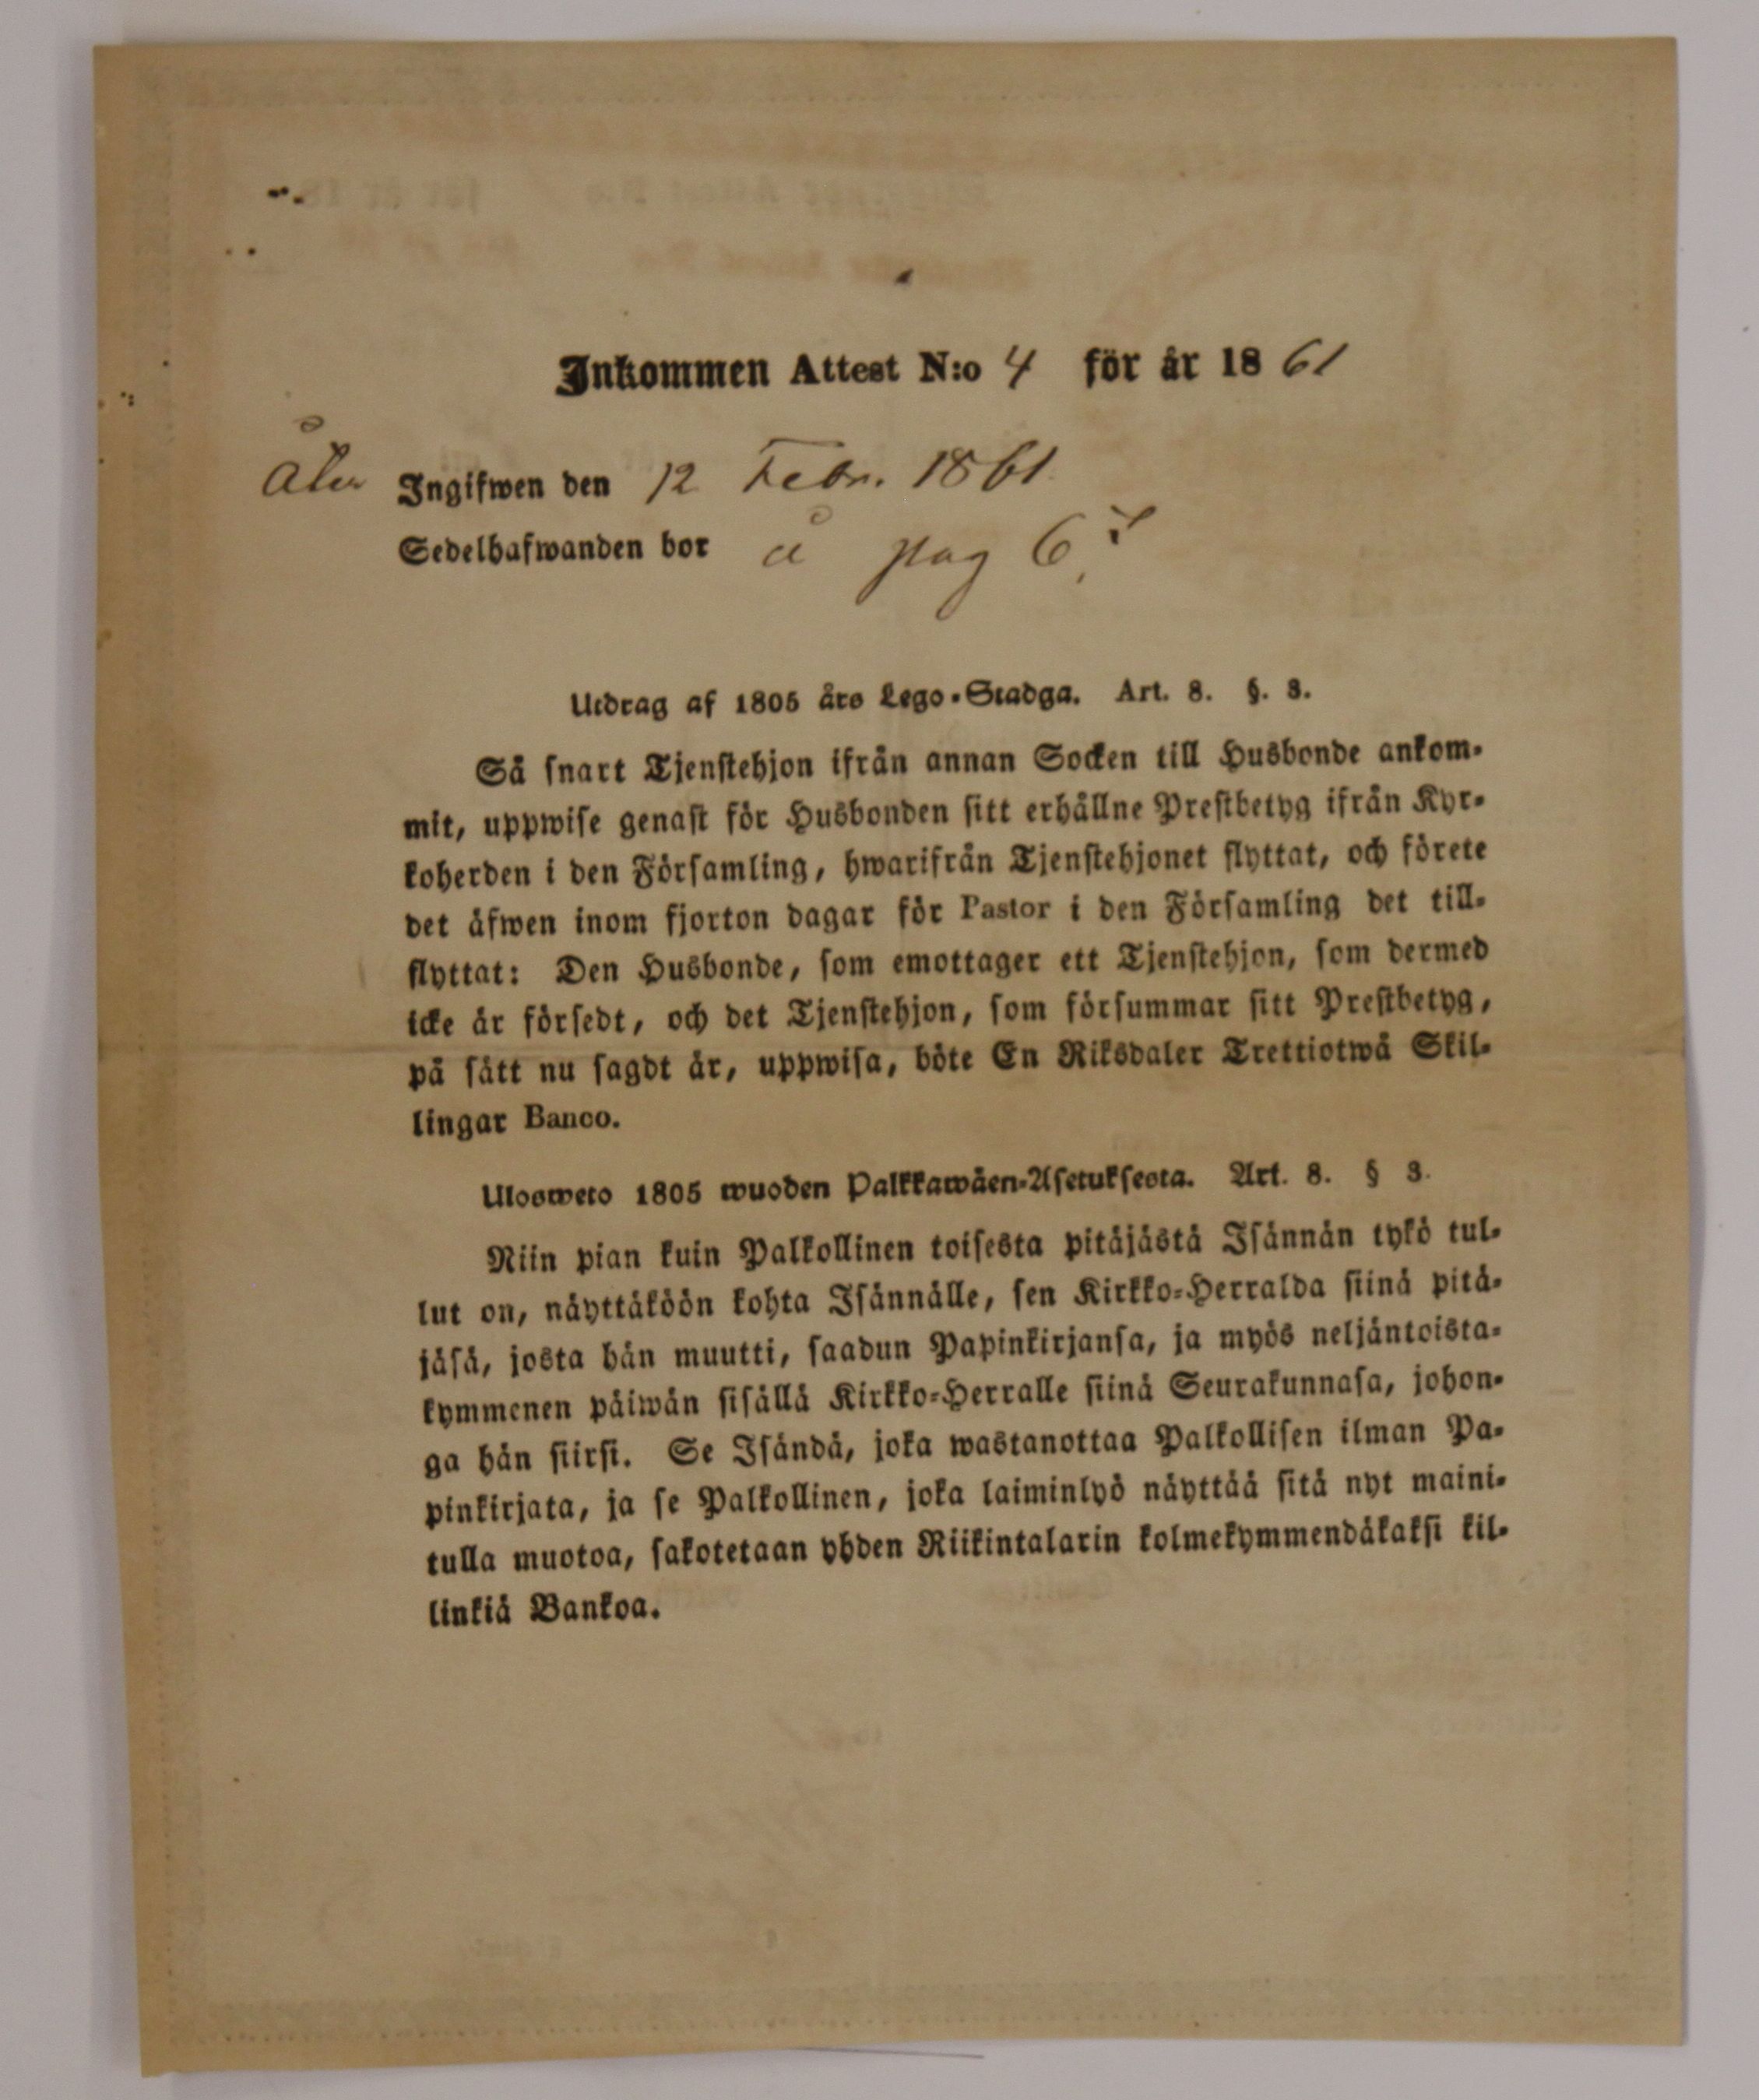 Inkommen Attest N:o 4 för år 1861
Åter Ingifwen den 12 Febr. 1861
Sedelhafwanden bor å pag 6
Utdrag af 1805 års Lego-Stadga. Art. 8. §. 3.
Så snart Tjenstehjon ifrån annan Socken till Husbonde ankom-
mit, uppwise genast för Husbonden sitt erhållne Prestbetyg ifrån Kyr-
koherden i den Församling, hwarifrån Tjenstehjonet flyttat, och förete
det äfwen inom fjorton dagar för Pastor i den Församling det till-
flyttat: Den Husbonde, som emottager ett Tjenstehjon, som dermed
icke är försedt, och det Tjenstehjon, som försummar sitt Prestbetyg,
på sätt nu sagdt är, uppwisa, böte En Riksdaler Trettiotwå Skil-
lingar Banco.
Ulosweto 1805 wuoden Palkkawäen-Asetuksesta. Art. 8. § 3.
Niin pian kuin Palkollinen toisesta pitäjästä Isännän tykö tul-
lut on, näyttäköön kohta Isännälle, sen Kirkko-Herralda siinä pitä-
jäsä, josta hän muutti, saadun Papinkirjansa, ja myös neljäntoista-
kymmenen päiwän sisällä Kirkko-Herralle siinä Seurakunnasa, johon-
ga hän siirsi. Se Isändä, joka wastanottaa Palkollisen ilman Pa-
pinkirjata, ja se Palkollinen, joka laiminlyö näyttää sitä nyt maini-
tulla muotoa, sakotetaan yhden Riikintalarin kolmekymmendäkaksi kil-
linkiä Bankoa.